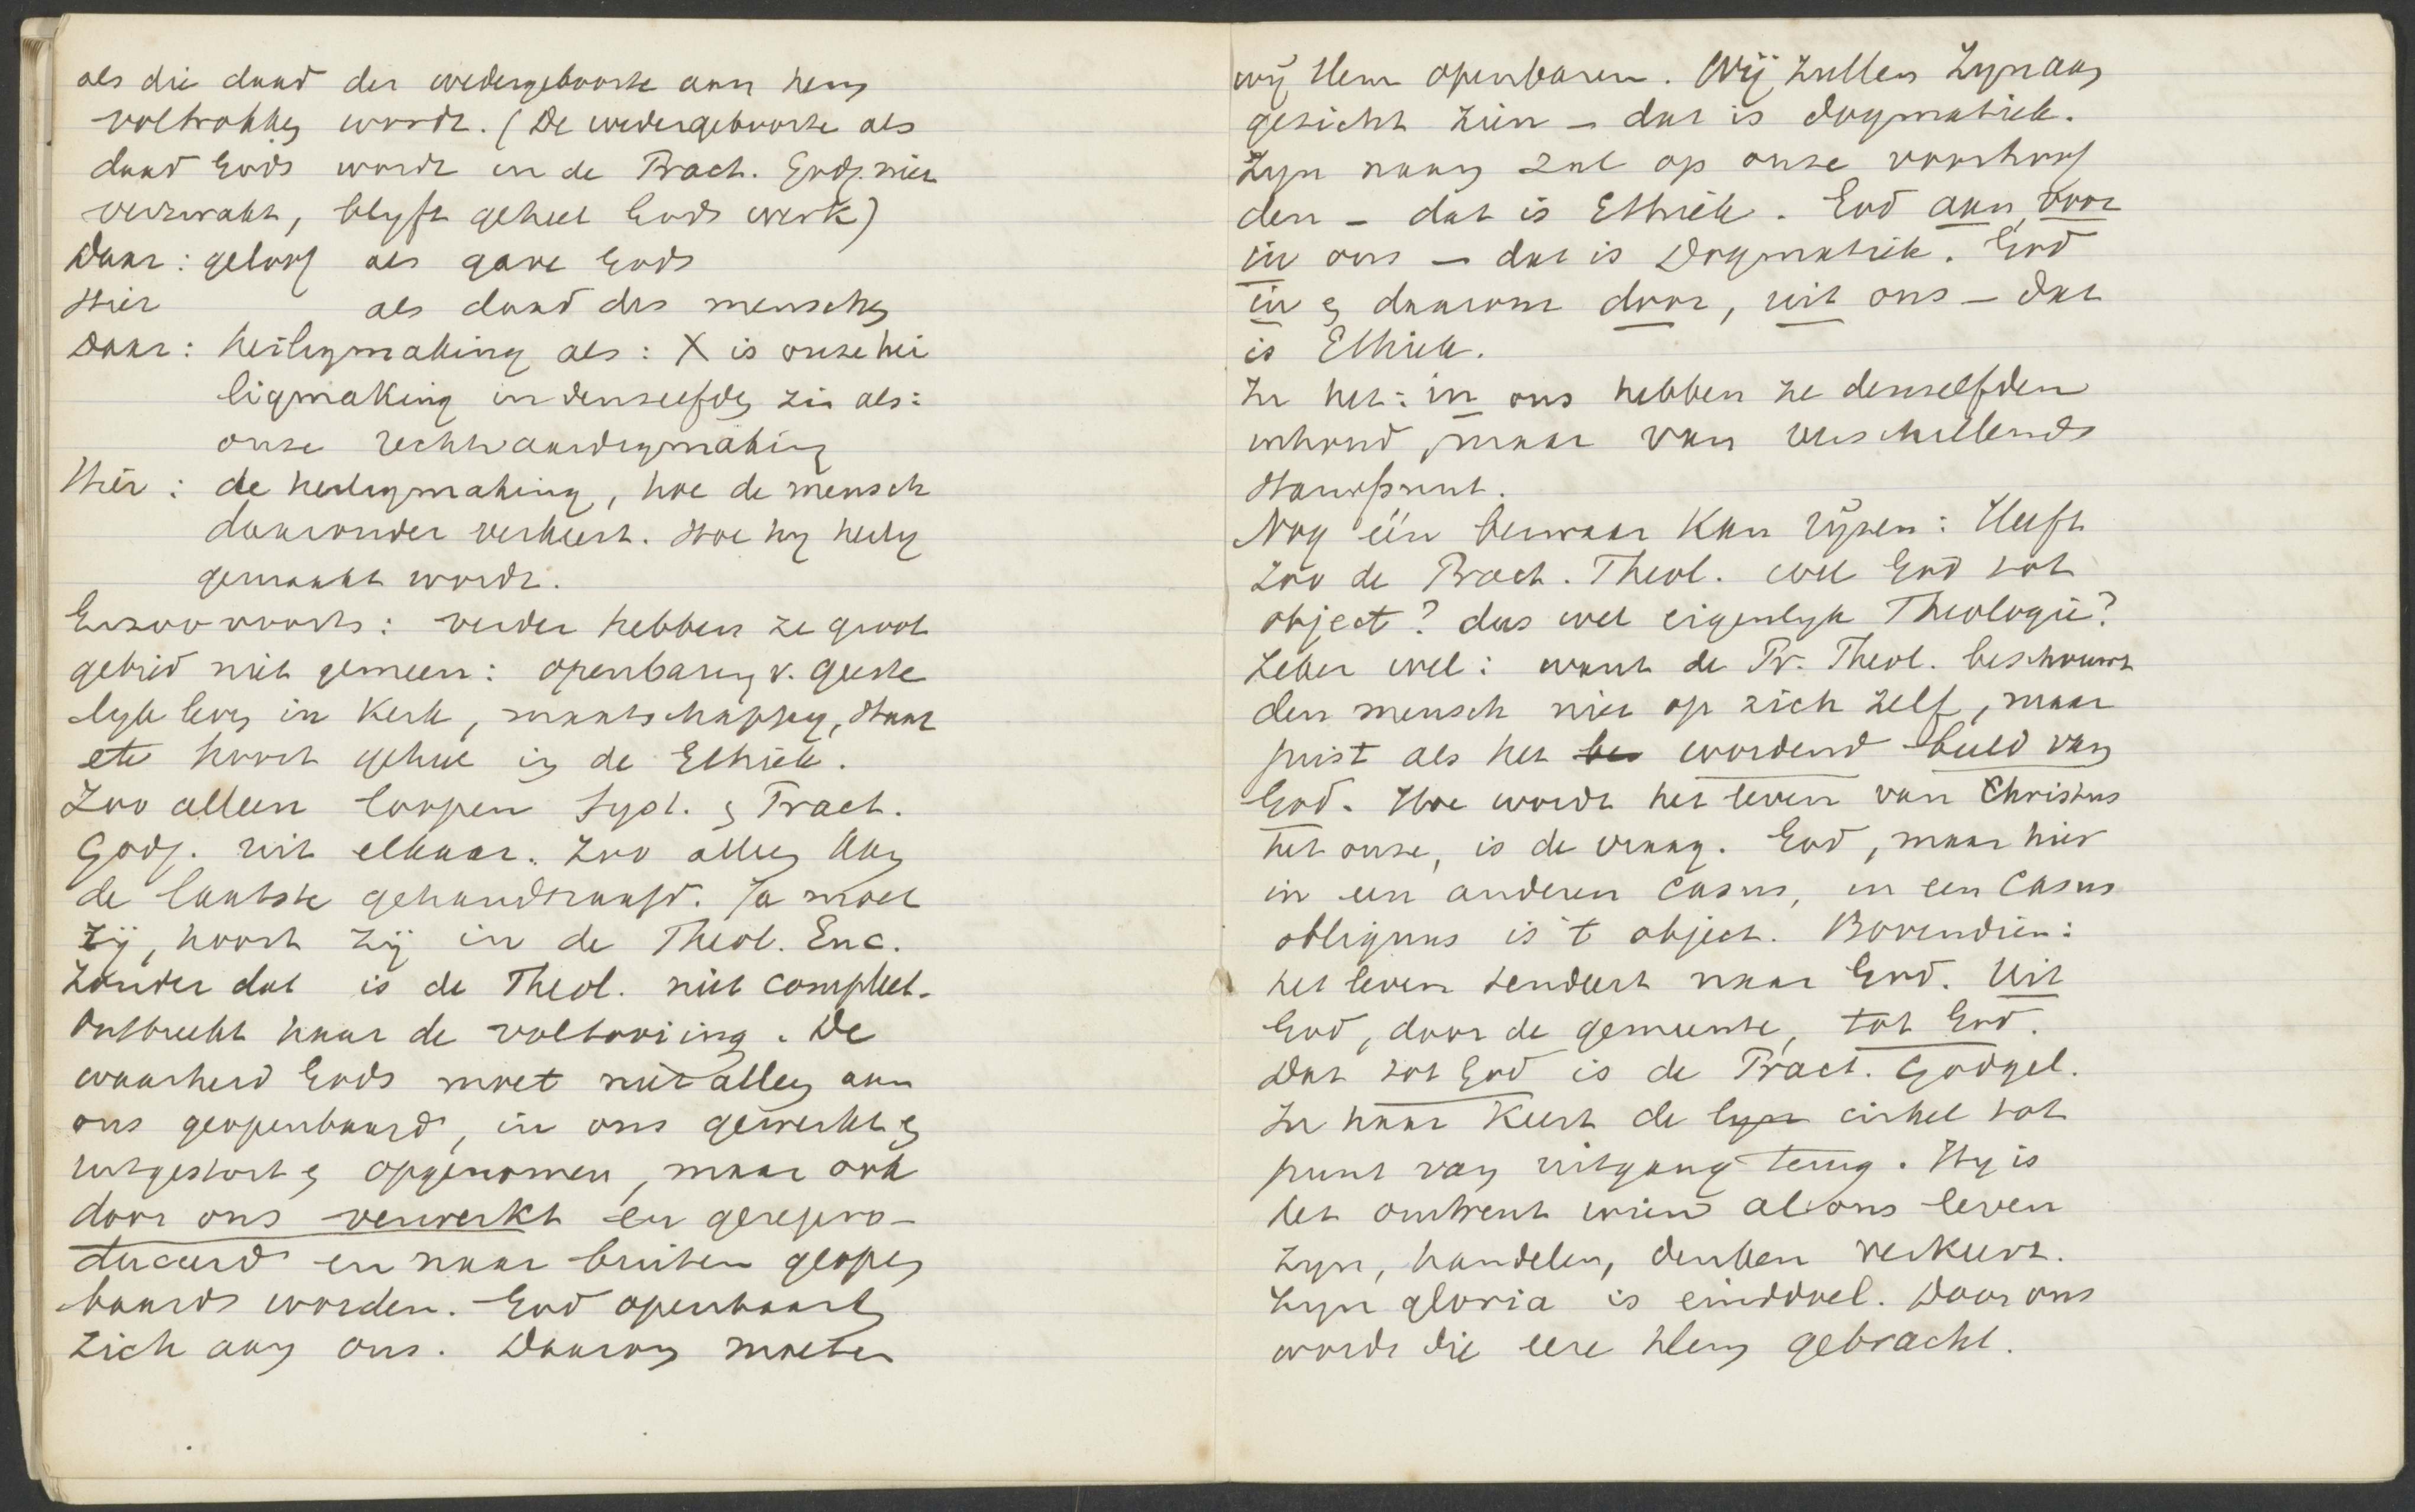 als die daad der wedergeboorte aan hem
voltrokken wordt. (De wedergeboorte als
daad Gods wordt in de Pract. Godg. niet
verzwakt, blyft geheel Gods werk)
Daar: geloof als gave Gods
Hier als daad des menschen
Daar: heiligmaking als: X is onze hei
ligmaking in denzelfden zin als:
onze rechtvaardigmaking
Hier: de heiligmaking, hoe de mensch
daaronder verkeert. Hoe hy heilig
gemaakt wordt.
Enzoovoorts: verder hebben ze groot
gebied niet gemeen: openbaring v. geeste
lyk leven in Kerk, maatschappy, Staat
etc hoort geheel in de Ethiek.
Zoo alleen loopen Syst. en Pract.
Godg. uit elkaar. Zoo alleen kan
de laatste gehandhaafd. Ja moet
zij, hoort zij in de Theol. Enc.
Zonder dat is de Theol. niet compleet.
Ontbreekt haar de voltooiing. De
waarheid Gods moet niet alleen aan
ons geopenbaard, in ons gewerkt en
uitgestort en opgenomen, maar ook
door ons verwerkt en gerepro-
duceerd en naar buiten geopen
baard worden. God openbaart
zich aan ons. Daarom moeten
wij Hem openbaren. Wij zullen Zyn aan
gezicht zien - dat is dogmatiek.
Zyn naam zal op onze voorhoof
den - dat is Ethiek. God aan, voor
in ons - dat is Dogmatiek. God
in en daarom door, uit ons - dat
is Ethiek.
In het: in ons hebben ze denzelfden
inhoud, maar van verschillend
standpunt.
Nog één bezwaar kan rijzen: Heeft
zoo de Pract. Theol. wel God tot
object? dus wel eigenlyk Theologie?
Zeker wel: want de Pr. Theol. beschouwt
den mensch niet op zich zelf, maar
juist als het be wordend beeld van
God. Hoe wordt het leven van Christus
het onze, is de vraag. God, maar hier
in een anderen casus, in een casus
obliquus is 't object. Bovendien:
het leven tendeert naar God. Uit
God, door de gemeente, tot God.
Dat tot God is de Pract. Godgel.
In haar keert de lyn cirkel tot
punt van uitgang terug. Hy is
het omtrent wien al ons leven
zyn, handelen, denken verkeert.
Zyn gloria is einddoel. Door ons
wordt die eere Hem gebracht.